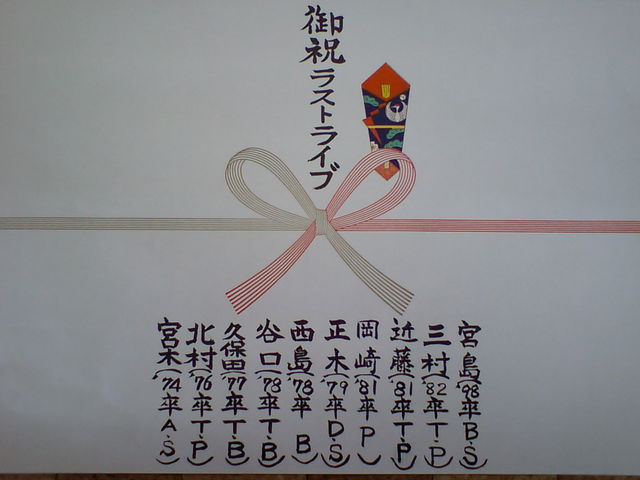 御祝 ラストライブ
宮島('98卒B.S)
三村('82卒T.P)
近藤('81卒T.P)
岡崎('81卒P)
正木('79卒D.S)
西島('78卒 B)
谷口('78卒T.B)
久保田('77卒T.B)
北村('76卒T.P)
宮木('74卒A.S)